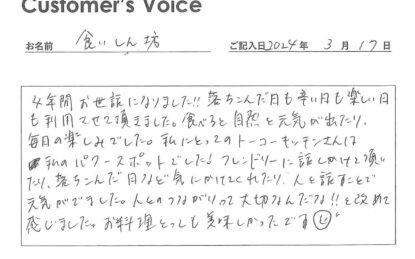 Customer's Voice
お名前 食いしん坊 ご記入日2024年 3月 17日
4年間お世話になりました!!落ちこんだ日も辛い日も楽しい日
も利用させて頂きました。食べると自然と元気が出たり、
毎日の楽しみでした。私にとってのトーコーキッチンさんは
私のパワースポットでした♪フレンドリーに話しかけて頂い
たり、落ちこんだ日など気にかけてくれたり、人と話すことで
元気がでました。人とのつながりって大切なんだな!!と改めて
感じました。お料理とっても美味しかったです